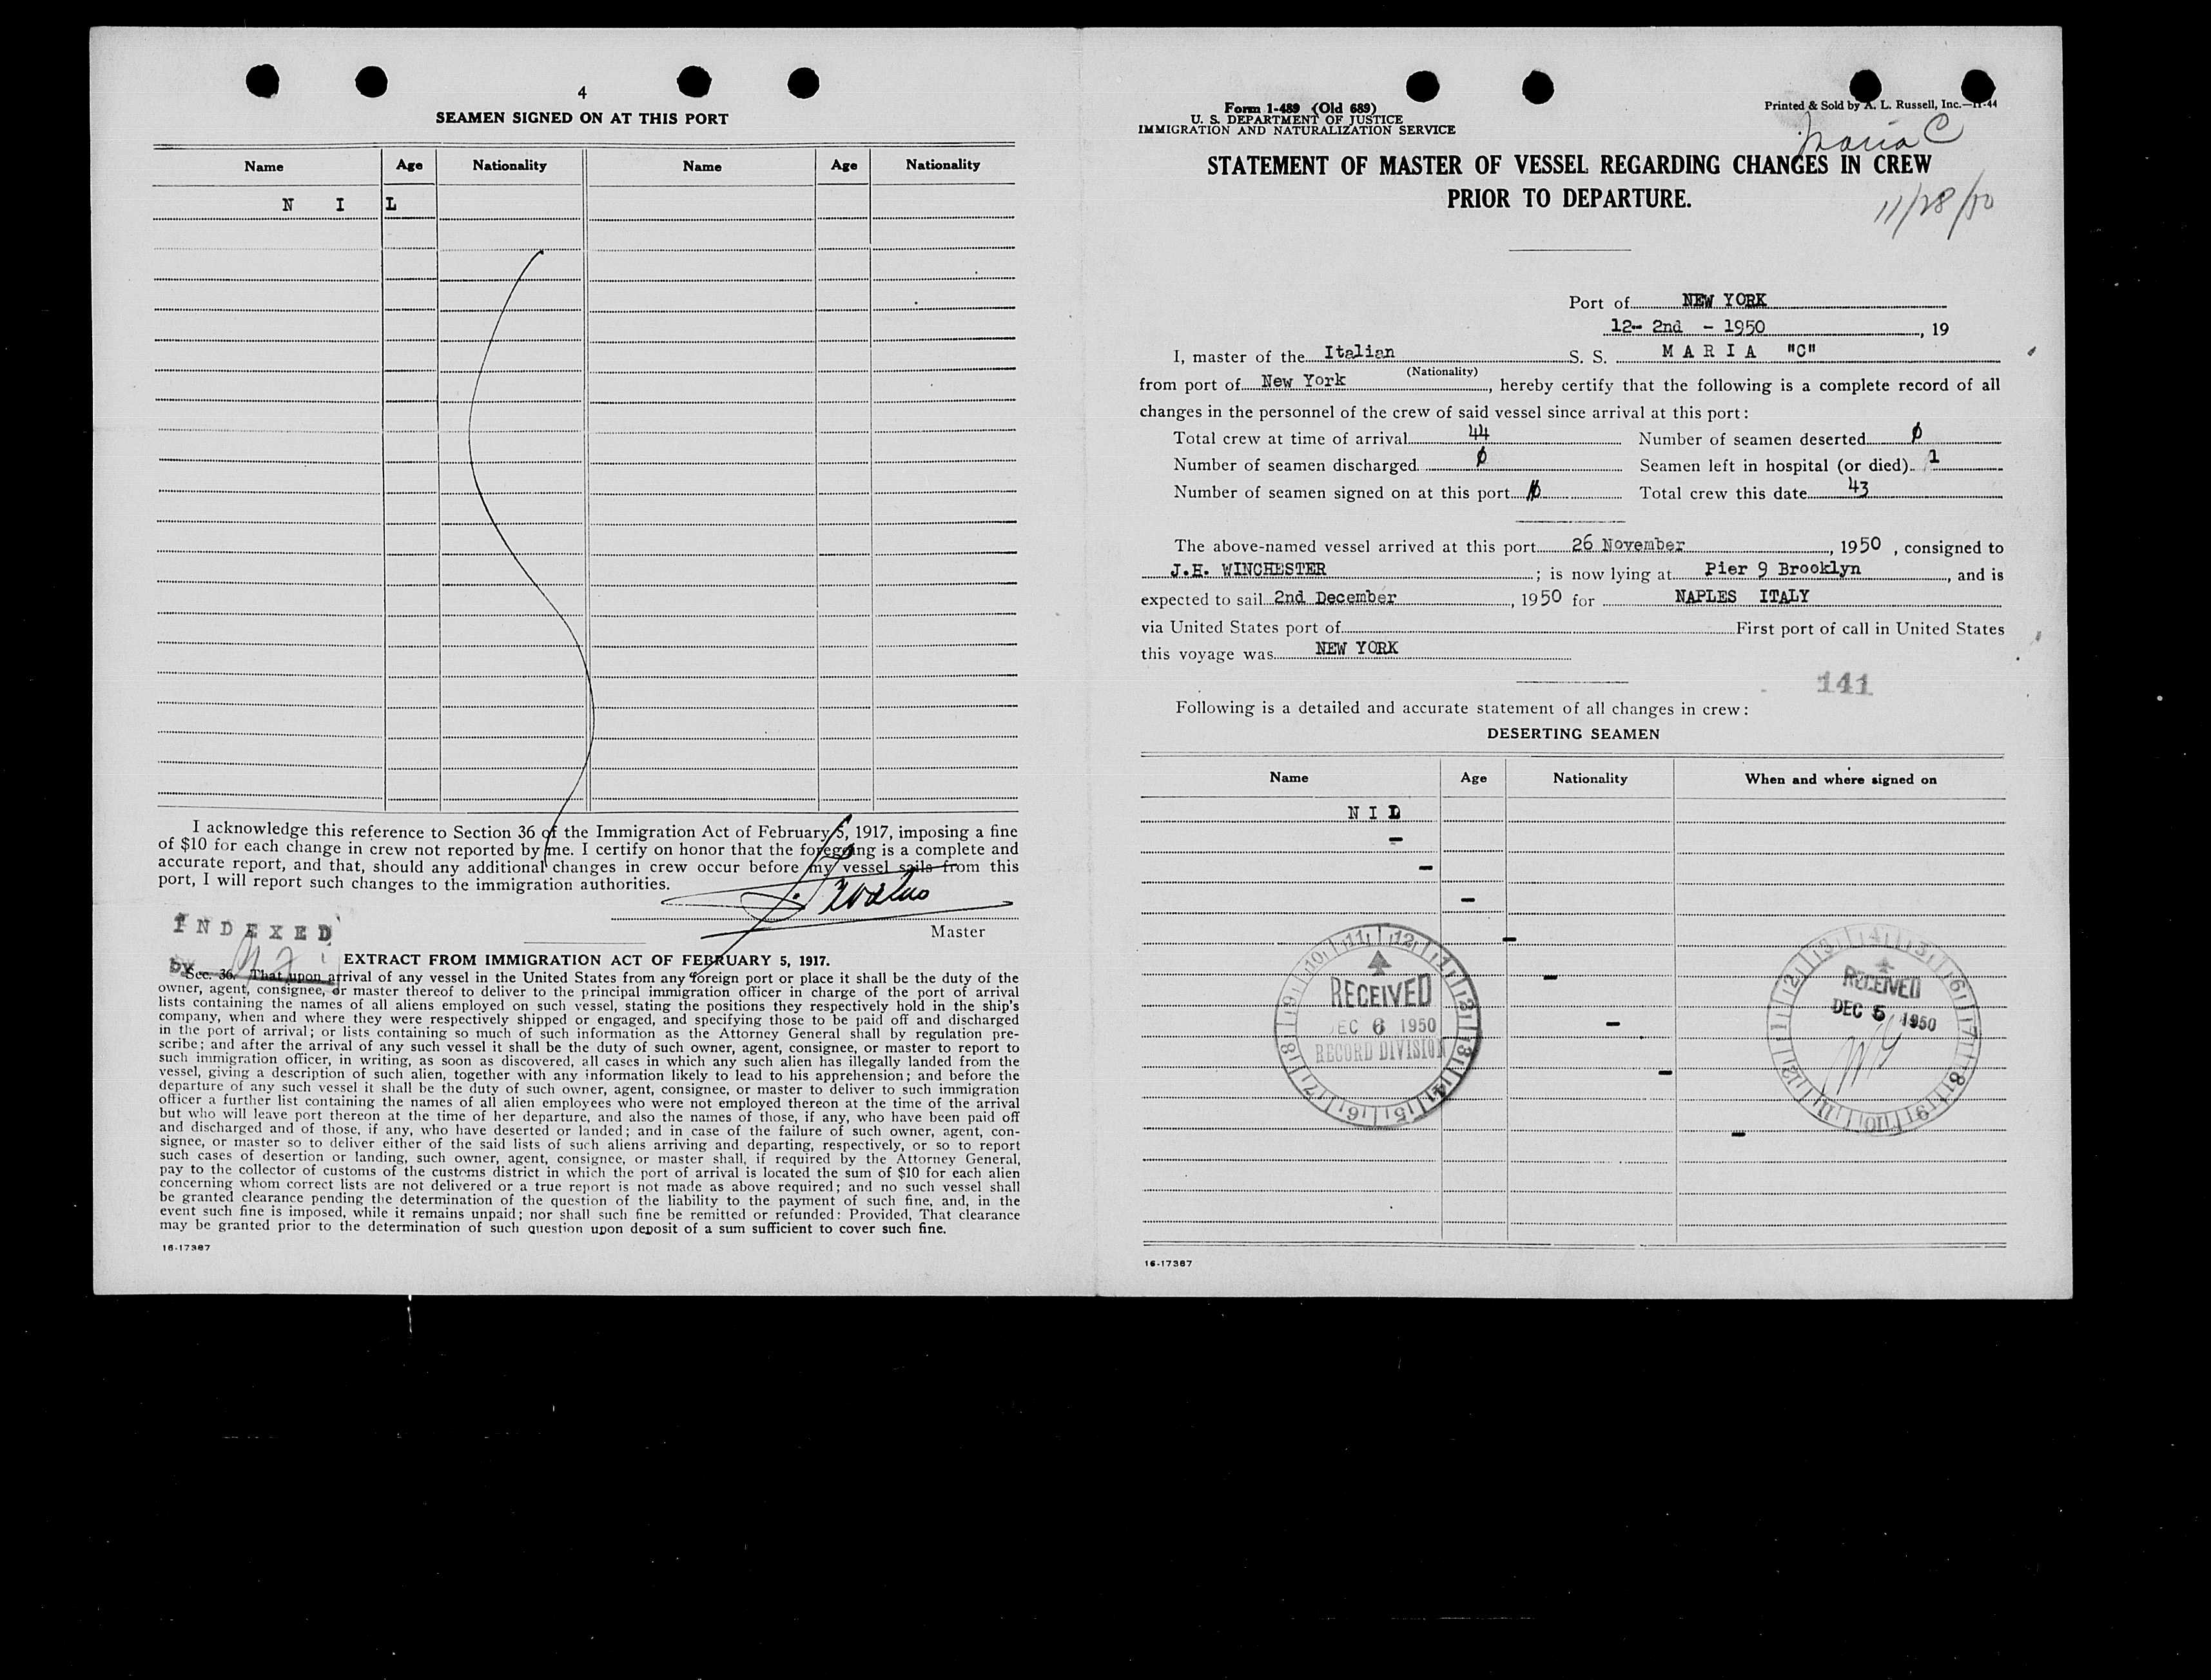 4
SEAMEN SIGNED ON AT THIS PORT
Name Age Nationality Name Age Nationality
N I L
I acknowledge this reference to Section 36 of the Immigration Act of February 5, 1917, imposing a fine
of $10 for each change in crew not reported by me. I certify on honor that the foregoing is a complete and
accurate report, and that, should any additional changes in crew occur before my vessel sails from this
port, I will report such changes to the immigration authorities.
Master
INDEXED
by
EXTRACT FROM IMMIGRATION ACT OF FEBRUARY 5, 1917.
Sec. 36. That upon arrival of any vessel in the United States from any foreign port or place it shall be the duty of the
owner, agent, consignee, or master thereof to deliver to the principal immigration officer in charge of the port of arrival
lists containing the names of all aliens employed on such vessel, stating the positions they respectively hold in the ship's
company, when and where they were respectively shipped or engaged, and specifying those to be paid off and discharged
in the port of arrival; or lists containing so much of such information as the Attorney General shall by regulation pre-
scribe; and after the arrival of any such vessel it shall be the duty of such owner, agent, consignee, or master to report to
such immigration officer, in writing, as soon as discovered, all cases in which any such alien has illegally landed from the
vessel, giving a description of such alien, together with any information likely to lead to his apprehension; and before the
departure of any such vessel it shall be the duty of such owner, agent, consignee, or master to deliver to such immigration
officer a further list containing the names of all alien employees who were not employed thereon at the time of the arrival
but who will leave port thereon at the time of her departure, and also the names of those, if any, who have been paid off
and discharged and of those, if any, who have deserted or landed; and in case of the failure of such owner, agent, con-
signee, or master so to deliver either of the said lists of such aliens arriving and departing, respectively, or so to report
such cases of desertion or landing, such owner, agent, consignee, or master shall, if required by the Attorney General,
pay to the collector of customs of the customs district in which the port of arrival is located the sum of $10 for each alien
concerning whom correct lists are not delivered or a true report is not made as above required; and no such vessel shall
be granted clearance pending the determination of the question of the liability to the payment of such fine, and, in the
event such fine is imposed, while it remains unpaid; nor shall such fine be remitted or refunded: Provided, That clearance
may be granted prior to the determination of such question upon deposit of a sum sufficient to cover such fine.
16-17387
Form 1-489 (Old 689)
U. S. DEPARTMENT OF JUSTICE
IMMIGRATION AND NATURALIZATION SERVICE
Printed & Sold by A. L. Russell, Inc.—11-44
Maria C
STATEMENT OF MASTER OF VESSEL REGARDING CHANGES IN CREW
PRIOR TO DEPARTURE.
11/28/50
Port of NEW YORK
12- 2nd - 1950, 19
I, master of the Italian S. S. M A R I A "C"
(Nationality)
from port of New York, hereby certify that the following is a complete record of all
changes in the personnel of the crew of said vessel since arrival at this port:
Total crew at time of arrival 44 Number of seamen deserted 0
Number of seamen discharged 0 Seamen left in hospital (or died) 1
Number of seamen signed on at this port Total crew this date 43
The above-named vessel arrived at this port 26 November, 1950, consigned to
J.H. WINCHESTER; is now lying at Pier 9 Brooklyn, and is
expected to sail 2nd December, 1950 for NAPLES ITALY
via United States port of First port of call in United States
this voyage was NEW YORK
141
Following is a detailed and accurate statement of all changes in crew:
DESERTING SEAMEN
Name Age Nationality When and where signed on
N I L
RECEIVED
DEC 6 1950
RECORD DIVISION
RECEIVED
DEC 5 1950
16-17387